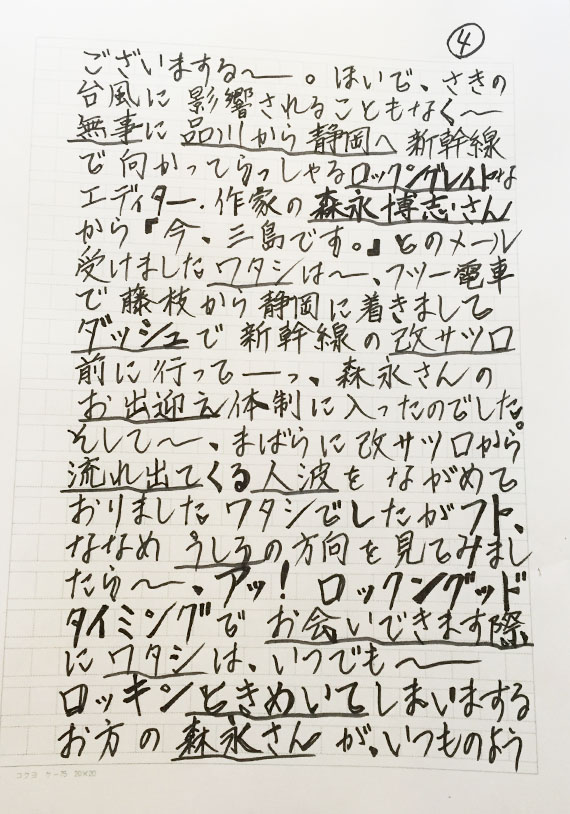 ④
ございまする〜ー。ほいで、さきの
台風に影響されることもなく〜
無事に品川から静岡へ新幹線
で向かってらっしゃるロックングレイトな
エディター.作家の森永博志さん
から『今、三島です。』とのメール
受けましたワタシは〜、フツー電車
で藤枝から静岡に着きまして
ダッシュで新幹線の改サツ口
前に行ってーっ、森永さんの
お出迎え体制に入ったのでした。
そして〜、まばらに改サツ口から
流れ出てくる人波をながめて
おりましたワタシでしたがフト、
ななめうしろの方向を見てみまし
たら〜、アッ! ロックングッド
タイミングでお会いできます際
にワタシは、いつでも〜ー
ロッキンときめいてしまいまする
お方の森永さんが、いつものよう
コクヨ ケー75 20×20